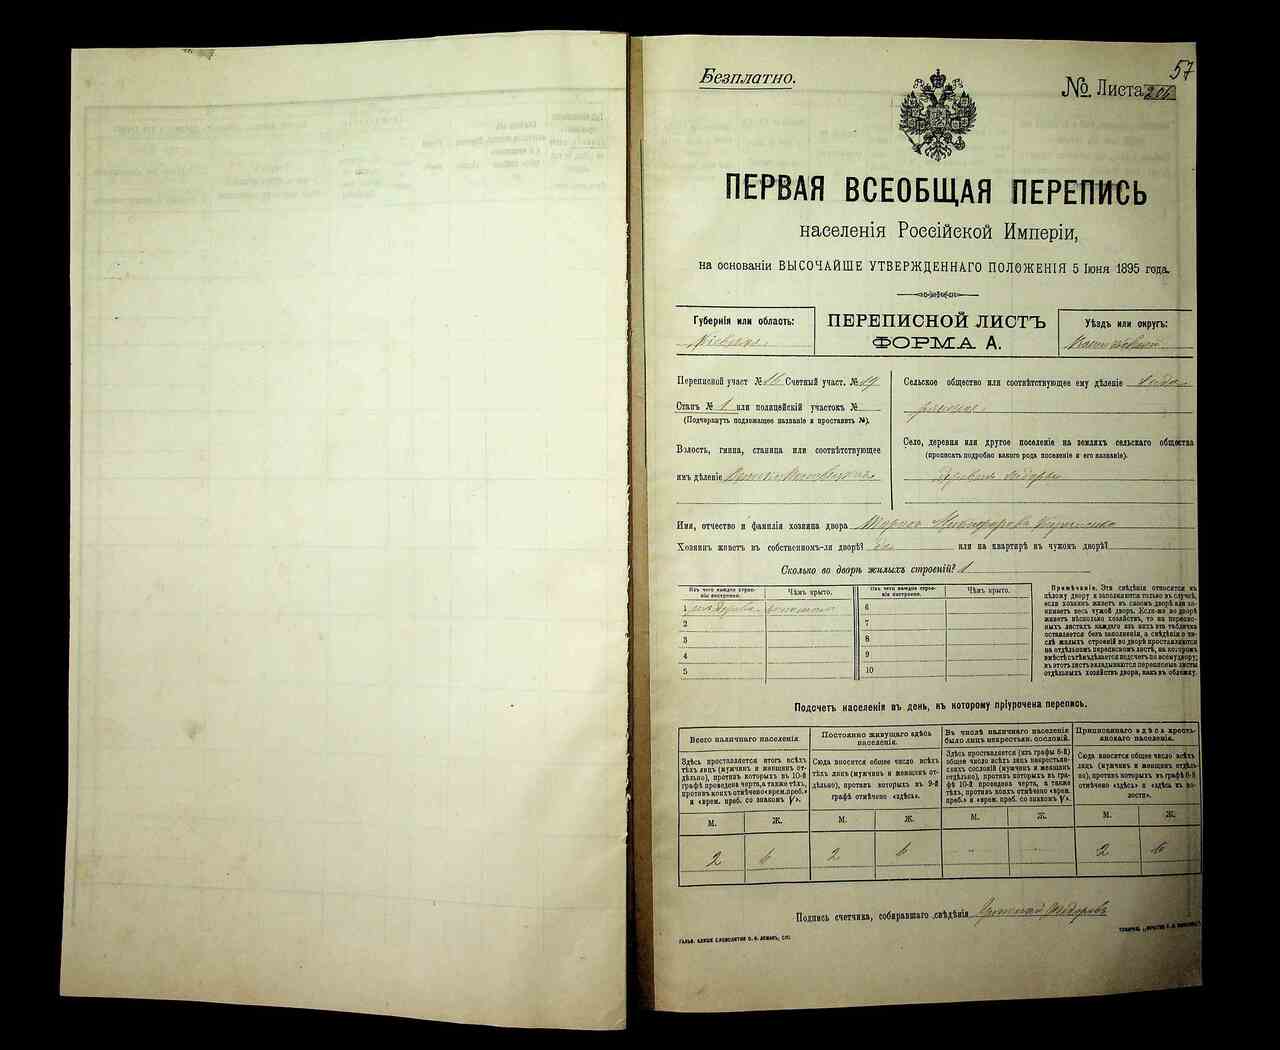 57
Безплатно.
№ Листа 206
ПЕРВАЯ ВСЕОБЩАЯ ПЕРЕПИСЬ
населенія Россійской Имперіи,
на основаніи ВЫСОЧАЙШЕ УТВЕРЖДЕННАГО ПОЛОЖЕНІЯ 5 Іюня 1895 года.
Губернія или область:
Кіевская
ПЕРЕПИСНОЙ ЛИСТЪ
ФОРМА А.
Уѣздъ или округъ:
Васильковскій
Переписной участ. № 16 Счетный участ. № 19
Станъ № 1 или полицейскій участокъ №
(Подчеркнуть подлежащее названіе и проставить №).
Волость, гмина, станица или соотвѣтствующее
имъ дѣленіе
Сельское общество или соотвѣтствующее ему дѣленіе
Село, деревня или другое поселеніе на земляхъ сельскаго общества
(прописать подробно какого рода поселеніе и его названіе).
Деревня
Имя, отчество и фамилія хозяина двора
Хозяинъ живетъ въ собственномъ-ли дворѣ? да или на квартирѣ въ чужомъ дворѣ?
Сколько во дворѣ жилыхъ строеній? 1
Изъ чего каждое строе-
ніе построено.
Чѣмъ крыто.
Изъ чего каждое строе-
ніе построено.
Чѣмъ крыто.
1 изъ дерева соломой
2
3
4
5
6
7
8
9
10
Примѣчаніе. Эти свѣдѣнія относятся къ
цѣлому двору и заполняются только въ случаѣ,
если хозяинъ живетъ въ своемъ дворѣ или за-
нимаетъ весь чужой дворъ. Если-же во дворѣ
живетъ нѣсколько хозяйствъ, то на перепис-
ныхъ листахъ каждаго изъ нихъ эта табличка
оставляется безъ заполненія, а свѣдѣнія о чи-
слѣ жилыхъ строеній во дворѣ проставляются
на отдѣльномъ переписномъ листѣ, на которомъ
вмѣстѣ съ тѣмъ дѣлается подсчетъ по всему двору;
въ этотъ листъ вкладываются переписные листы
отдѣльныхъ хозяйствъ двора, какъ въ обложку.
Подсчетъ населенія въ день, къ которому пріурочена перепись.
Всего наличнаго населенія.
Здѣсь проставляется итогъ всѣхъ
тѣхъ лицъ (мужчинъ и женщинъ от-
дѣльно), противъ которыхъ въ 10-й
графѣ проведена черта, а также тѣхъ,
противъ коихъ отмѣчено «врем. преб.»
и «врем. преб. со знакомъ V».
Постоянно живущаго здѣсь
населенія.
Сюда вносится общее число всѣхъ
тѣхъ лицъ (мужчинъ и женщинъ от-
дѣльно), противъ которыхъ въ 9-й
графѣ отмѣчено «здѣсь».
Въ числѣ наличнаго населенія
было лицъ некрестьян. сословій.
Здѣсь проставляется (изъ графы 8-й)
общее число всѣхъ лицъ некрестьян-
скихъ сословій (мужчинъ и женщинъ
отдѣльно), противъ которыхъ въ гра-
фѣ 10-й проведена черта, а также
тѣхъ, противъ коихъ отмѣчено «врем.
преб.» и «врем. преб. со знакомъ V».
Приписаннаго здѣсь кресть-
янскаго населенія.
Сюда вносится общее число всѣхъ
лицъ (мужчинъ и женщинъ отдѣль-
но), противъ которыхъ въ графѣ 8-й
отмѣчено «здѣсь» и «здѣсь въ во-
лости».
М. Ж. М. Ж. М. Ж. М. Ж.
2 6 2 6 - - 2 6
Подпись счетчика, собиравшаго свѣдѣнія